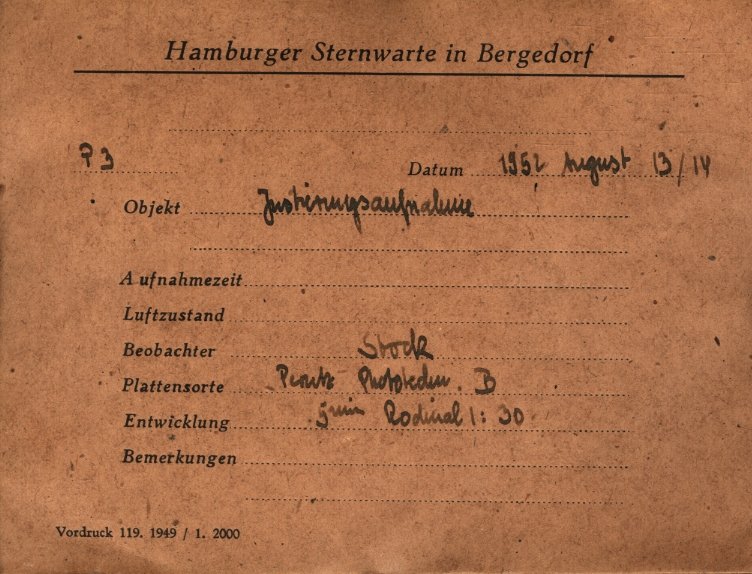 Hamburger Sternwarte in Bergedorf
P 3
Datum 1952 August 13/14
Objekt Justierungsaufnahme
Aufnahmezeit
Luftzustand
Beobachter Stock
Plattensorte Perutz Phototechn. B
Entwicklung 5 min Rodinal 1:30
Bemerkungen
Vordruck 119. 1949 / 1. 2000